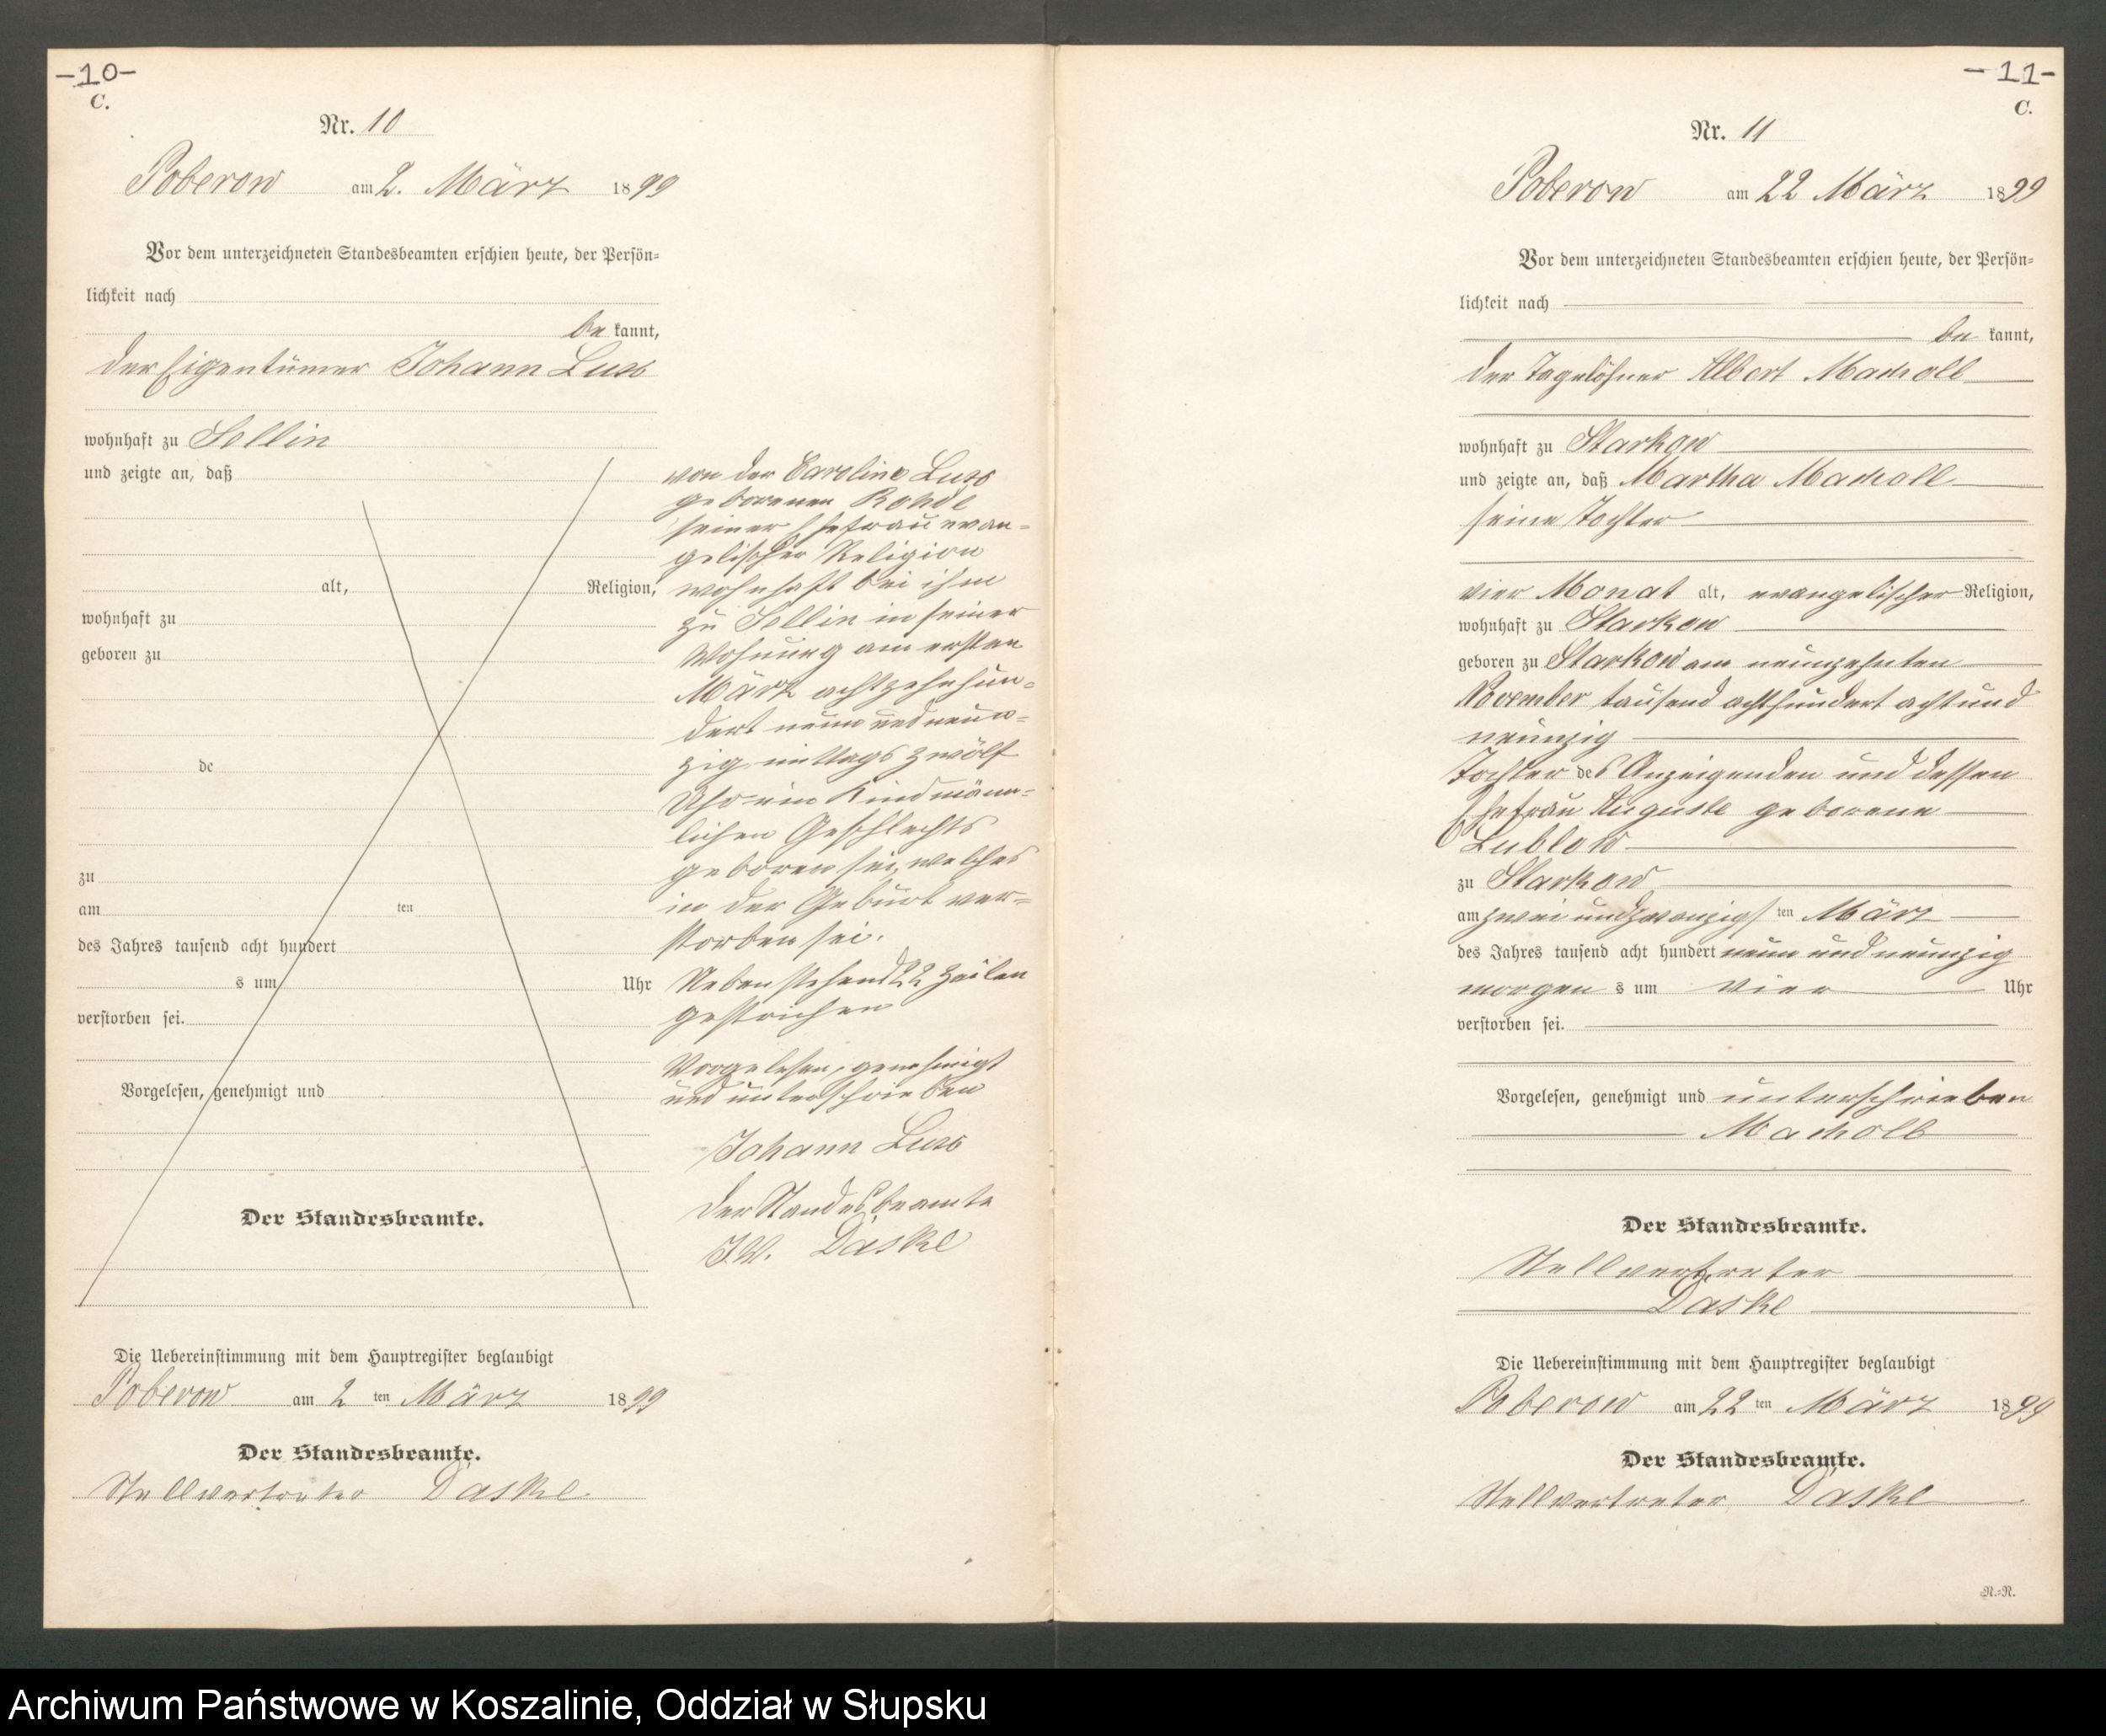 -10-
C.
Nr. 10
Poberow am 2. März 1899
Vor dem unterzeichneten Standesbeamten erschien heute, der Persön=
lichkeit nach
be kannt,
der Eigentümer Johann Luss
wohnhaft zu Sellin
und zeigte an, daß
alt, Religion,
wohnhaft zu
geboren zu
de
zu
am ten
des Jahres tausend acht hundert
s um Uhr
verstorben sei.
Vorgelesen, genehmigt und
Der Standesbeamte.
von der Caroline Luss
geborenen Rohde
seiner Ehefrau evan=
gelischer Religion
wohnhaft bei ihm
zu Sellin in seiner
Wohnung am ersten
März achtzehnhun=
dert neun und neun=
zig mittags zwölf
Uhr ein Kind männ=
lichen Geschlechts
geboren sei, welches
in der Geburt ver=
storben sei.
Nebenstehend 22 Zeilen
gestrichen
Vorgelesen, genehmigt
und unterschrieben
Johann Luss
Der Standesbeamte
J.V. Daske
Die Uebereinstimmung mit dem Hauptregister beglaubigt
Poberow am 2 ten März 1899
Der Standesbeamte.
Stellvertreter Daske
-11-
C.
Nr. 11
Poberow am 22 März 1899
Vor dem unterzeichneten Standesbeamten erschien heute, der Persön=
lichkeit nach
be kannt,
der Tagelöhner Albert Macholl
wohnhaft zu Starkow
und zeigte an, daß Martha Macholl
seine Tochter
vier Monat alt, evangelischer Religion,
wohnhaft zu Starkow
geboren zu Starkow am neunzehnten
November tausend achthundert acht und
neunzig
Tochter des Anzeigenden und dessen
Ehefrau Auguste geborene
Lublow
zu Starkow
am zwei und zwanzigs ten März
des Jahres tausend acht hundert neun und neunzig
morgen s um vier Uhr
verstorben sei.
Vorgelesen, genehmigt und unterschrieben
Macholl
Der Standesbeamte.
Stellvertreter
Daske
Die Uebereinstimmung mit dem Hauptregister beglaubigt
Poberow am 22 ten März 1899
Der Standesbeamte.
Stellvertreter Daske
R.=R.
Archiwum Państwowe w Koszalinie, Oddział w Słupsku